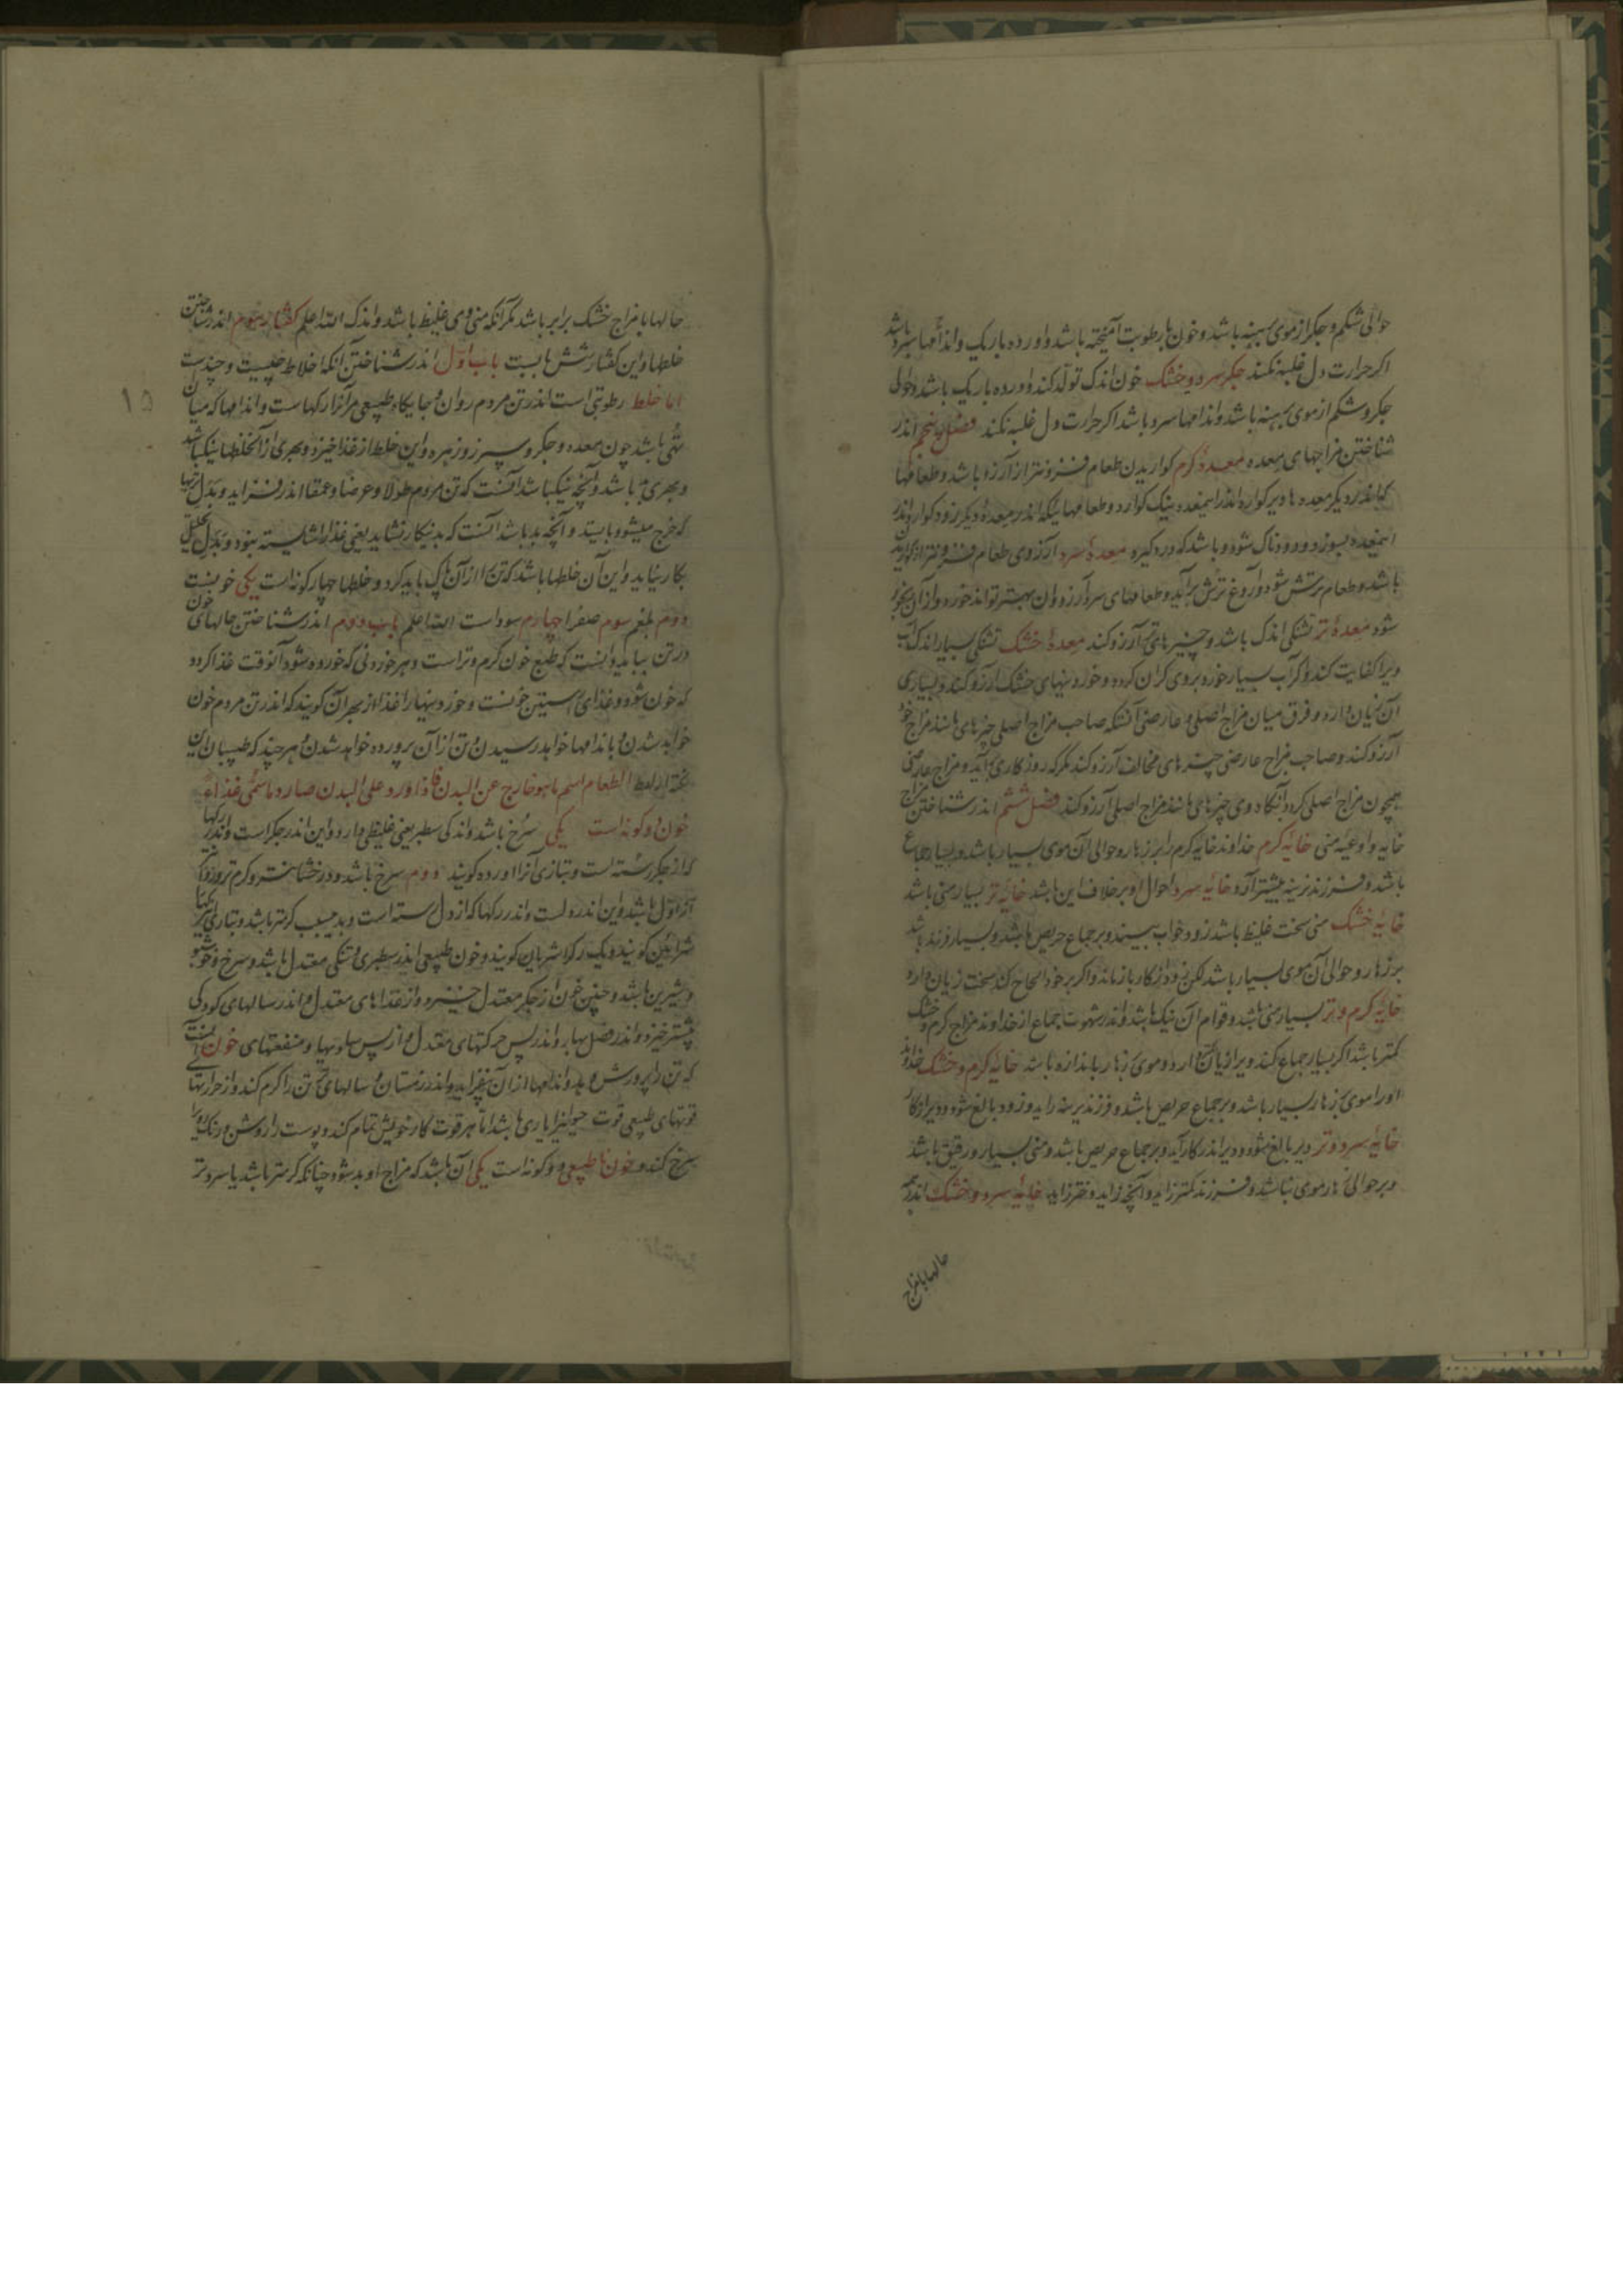 حوالی شکم و جگر از موی برهنه باشد و خون با رطوبت آمیخته باشد و اورده باریک و اندامها سرد باشد
اگر حرارت دل غلبه نکند جگر سرد و خشک خون اندک تولد کند و اورده باریک باشد و حوالی
جگر و شکم از موی برهنه باشد و اندامها سرد باشد اگر حرارت دل غلبه نکند فصل پنجم اندر
شناختن مزاجهای معده معدهٔ گرم گواریدن طعام فزونتر از آرزو باشد و طعامها
که اندر دیگر معده‌ها دیر گوارد اندر این معده نیک گوارد و طعامهائیکه اندر معدهٔ دیگر زود گوارد اندر
اینمعده بسوزد و دودناک شود و باشد که درد گیرد معدهٔ سرد آرزوی طعام فزونتر از گواریدن
باشد و طعام ترش شود و آروغ ترش برآید و طعامهای سرد آرزو
شود معدهٔ تر تشنگی اندک باشد و چیزهای تر آرزو کند معدهٔ خشک تشنگی بسیار اندک آب
ویرا کفایت کند و اگر آب بسیار خورد بروی گران گردد و خوردنیهای خشک آرزو کند و بسیاری
آن زیان دارد و فرق میان مزاج اصلی و عارضی آنستکه صاحب مزاج اصلی چیزهای مانند مزاج خود
آرزو کند و صاحب مزاج عارضی چیزهای مخالف آرزو کند مگر که روزگاری برآید و مزاج عارضی
همچون مزاج اصلی گردد آنگاه وی چیزهای مانند مزاج اصلی آرزو کند فصل ششم اندر شناختن مزاج
خایه و اوعیه منی خایهٔ گرم خداوند خایه گرم را بر زهار و حوالی آن موی بسیار باشد و بسیار جماع
باشد و فرزند نرینه بیشتر آرد خایهٔ سرد احوال او بر خلاف این باشد خایهٔ تر بسیار منی باشد
خایهٔ خشک منی سخت غلیظ باشد زود خواب بیند و بر جماع حریص باشد و بسیار فرزند باشد
بر زهار و حوالی آن موی بسیار باشد لکن زود از کار بازماند و اگر بر خود الحاح کند سخت زیان دارد
خایهٔ گرم و تر بسیار منی باشد و قوام آن نیک باشد و اندر شهوت جماع از خداوند مزاج گرم و خشک
کمتر باشد اگر بسیار جماع کند ویرا زیان ندارد و موی زهار باندازه باشد خایهٔ گرم و خشک خداوند
او را موی زهار بسیار باشد و بر جماع حریص باشد و فرزند نرینه زاید و زود بالغ شود و دیر از کار
خایهٔ سرد و تر دیر بالغ شود و دیر اندر کار آید و بر جماع حریص باشد و منی بسیار و رقیق باشد
و بر حوالی زهار موی نباشد و فرزند کمتر زاید و آنچه زاید دختر زاید خایهٔ سرد و خشک اندر همه
حالها با مزاج
حالها با مزاج خشک برابر باشد مگر آنکه منی وی غلیظ باشد و اندک الله اعلم گفتار سوم اندر شناختن
خلطها و این گفتار شش بابست باب اول اندر شناختن آنکه اخلاط چیست و چندست
اما خلط رطوبتی است اندر تن مردم روان و جایگاه طبیعی مر آنرا رگهاست و اندامها که میان
تهی باشد چون معده و جگر و سپرز و زهره و این خلط از غذا خیزد و بهری از آن خلطها نیک باشد
و بهری بد باشد و آنچه نیک باشد آنست که تن مردم طولا و عرضا و عمقا اندر فزاید و بدل تریها
که خرج میشود بایستد و آنچه بد باشد آنست که بدینکار نشاید یعنی غذا را شایسته نبود و بدل تحلیل
بکار نیاید و این آن خلطها باشد که تن را از آن پاک باید کرد و خلطها چهار گونه است یکی خونست
دوم بلغم سوم صفرا چهارم سوداست الله اعلم باب دوم اندر شناختن حالهای خون
در تن بباید دانست که طبع خون گرم و تر است و هر خوردنی که خورده شود آنوقت غذا گردد
که خون شود و غذای راستین خونست و خوردنیها را غذا از بهر آن گویند که اندر تن مردم خون
خواهد شدن و باندامها خواهد رسیدن و تن از آن پرورده خواهد شدن و هر چند که طبیبان این
گفته‌اند الطعام اسم ما هو خارج عن البدن فاذا ورد علی البدن صار دما سمی غذاء
خون دو گونه است یکی سرخ باشد و اندکی سطبر یعنی غلیظی دارد و این اندر جگر است و اندر رگها
که از جگر رسته است و بتازی آنرا اورده گویند دوم سرخ باشد و درخشان‌تر و گرم‌تر و زودتر
از اول باشد و این اندر دلست و اندر رگها که از دل رسته است و بدین سبب گرمتر باشد و بتازی این رگها
شرائین گویند و یک رگ را شریان گویند و خون طبیعی اندر سطبری و تنکی معتدل باشد و سرخ و خوشبو
و شیرین باشد و چنین خون از جگر معتدل خیزد و از غذاهای معتدل و اندر سالهای کودکی
بیشتر خیزد و اندر فصل بهار و اندر پس حرکتهای معتدل و از پس شادیها و منفعتهای خون آنست
که تن را پرورش دهد و اندامها از آن بفزاید و اندر زمستان و سالهای پیری تن را گرم کند و از حرارتها
قوتهای طبیعی قوت حیوانی را یاری باشد تا هر قوت کار خویش تمام کند و پوست را روشن و رنگ روی را
سرخ کند و خون ناطبیعی دو گونه است یکی آن باشد که مزاج او بد شود چنانکه گرمتر باشد یا سردتر
۱۵